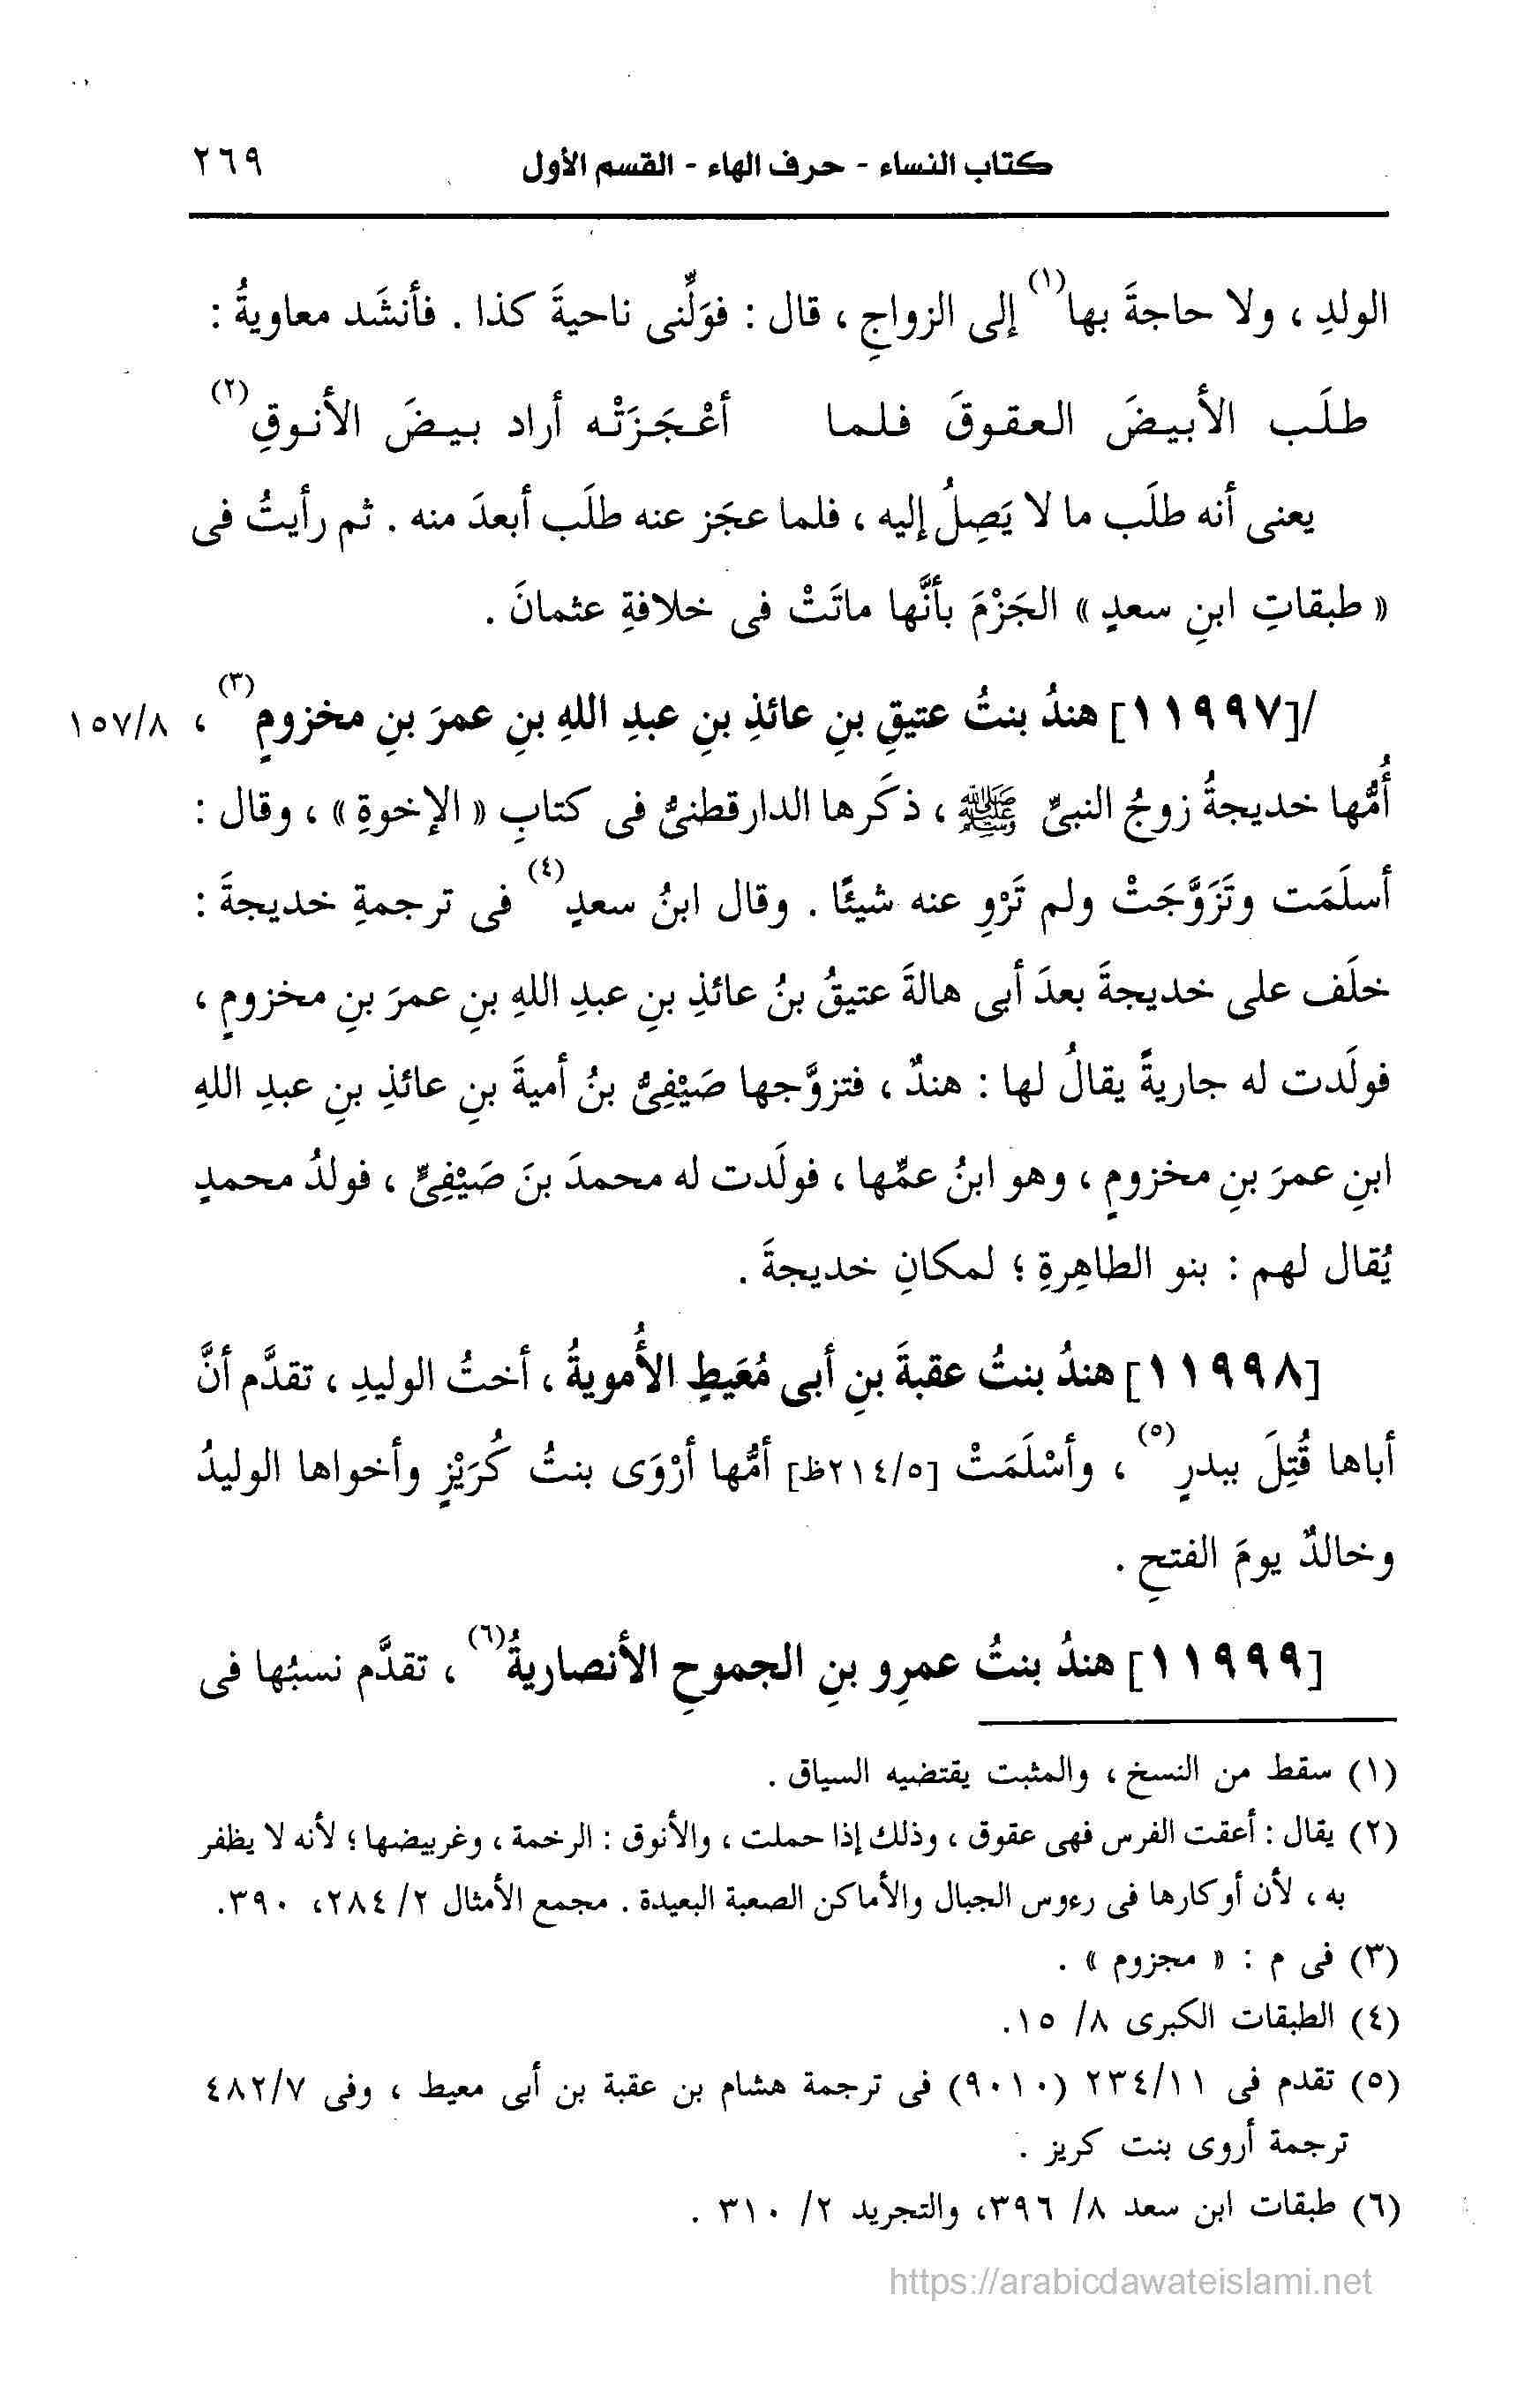 كتاب النساء - حرف الهاء - القسم الأول ٢٦٩
الولدِ ، ولا حاجةَ بها(١) إلى الزواجِ ، قال : فوَلِّنى ناحيةَ كذا . فأنشَد معاويةُ :
طلَب الأبيضَ العقوقَ فلما أعْجَزَتْه أراد بيضَ الأنوقِ(٢)
يعنى أنه طلَب ما لا يَصِلُ إليه ، فلما عجَز عنه طلَب أبعدَ منه . ثم رأيتُ فى
« طبقاتِ ابنِ سعدٍ » الجَزْمَ بأنَّها ماتَتْ فى خلافةِ عثمانَ .
/[١١٩٩٧] هندُ بنتُ عتيقِ بنِ عائذِ بنِ عبدِ اللهِ بنِ عمرَ بنِ مخزومٍ(٣) ، ١٥٧/٨
أُمُّها خديجةُ زوجُ النبىِّ ﷺ ، ذكَرها الدارقطنىُّ فى كتابِ « الإخوةِ » ، وقال :
أسلَمَت وتَزَوَّجَتْ ولم تَرْوِ عنه شيئًا . وقال ابنُ سعدٍ(٤) فى ترجمةِ خديجةَ :
خلَف على خديجةَ بعدَ أبى هالةَ عتيقُ بنُ عائذِ بنِ عبدِ اللهِ بنِ عمرَ بنِ مخزومٍ ،
فولَدت له جاريةً يقالُ لها : هندٌ ، فتزوَّجها صَيْفِىُّ بنُ أميةَ بنِ عائذِ بنِ عبدِ اللهِ
ابنِ عمرَ بنِ مخزومٍ ، وهو ابنُ عمِّها ، فولَدت له محمدَ بنَ صَيْفِىٍّ ، فولدُ محمدٍ
يُقال لهم : بنو الطاهِرةِ ؛ لمكانِ خديجةَ .
[١١٩٩٨] هندُ بنتُ عقبةَ بنِ أبى مُعَيطٍ الأُمويةُ ، أختُ الوليدِ ، تقدَّم أنَّ
أباها قُتِلَ ببدرٍ(٥) ، وأسْلَمَتْ [٢١٤/٥ظ] أمُّها أرْوَى بنتُ كُرَيْزٍ وأخواها الوليدُ
وخالدٌ يومَ الفتحِ .
[١١٩٩٩] هندُ بنتُ عمرِو بنِ الجموحِ الأنصاريةُ(٦) ، تقدَّم نسبُها فى
(١) سقط من النسخ ، والمثبت يقتضيه السياق .
(٢) يقال : أعقت الفرس فهى عقوق ، وذلك إذا حملت ، والأنوق : الرخمة ، وغربيضها ؛ لأنه لا يظفر
به ، لأن أوكارها فى رءوس الجبال والأماكن الصعبة البعيدة . مجمع الأمثال ٢/ ٢٨٤، ٣٩٠.
(٣) فى م : « مجزوم » .
(٤) الطبقات الكبرى ٨/ ١٥.
(٥) تقدم فى ٢٣٤/١١ (٩٠١٠) فى ترجمة هشام بن عقبة بن أبى معيط ، وفى ٤٨٢/٧
ترجمة أروى بنت كريز .
(٦) طبقات ابن سعد ٨/ ٣٩٦، والتجريد ٢/ ٣١٠ .
https://arabicdawateislami.net